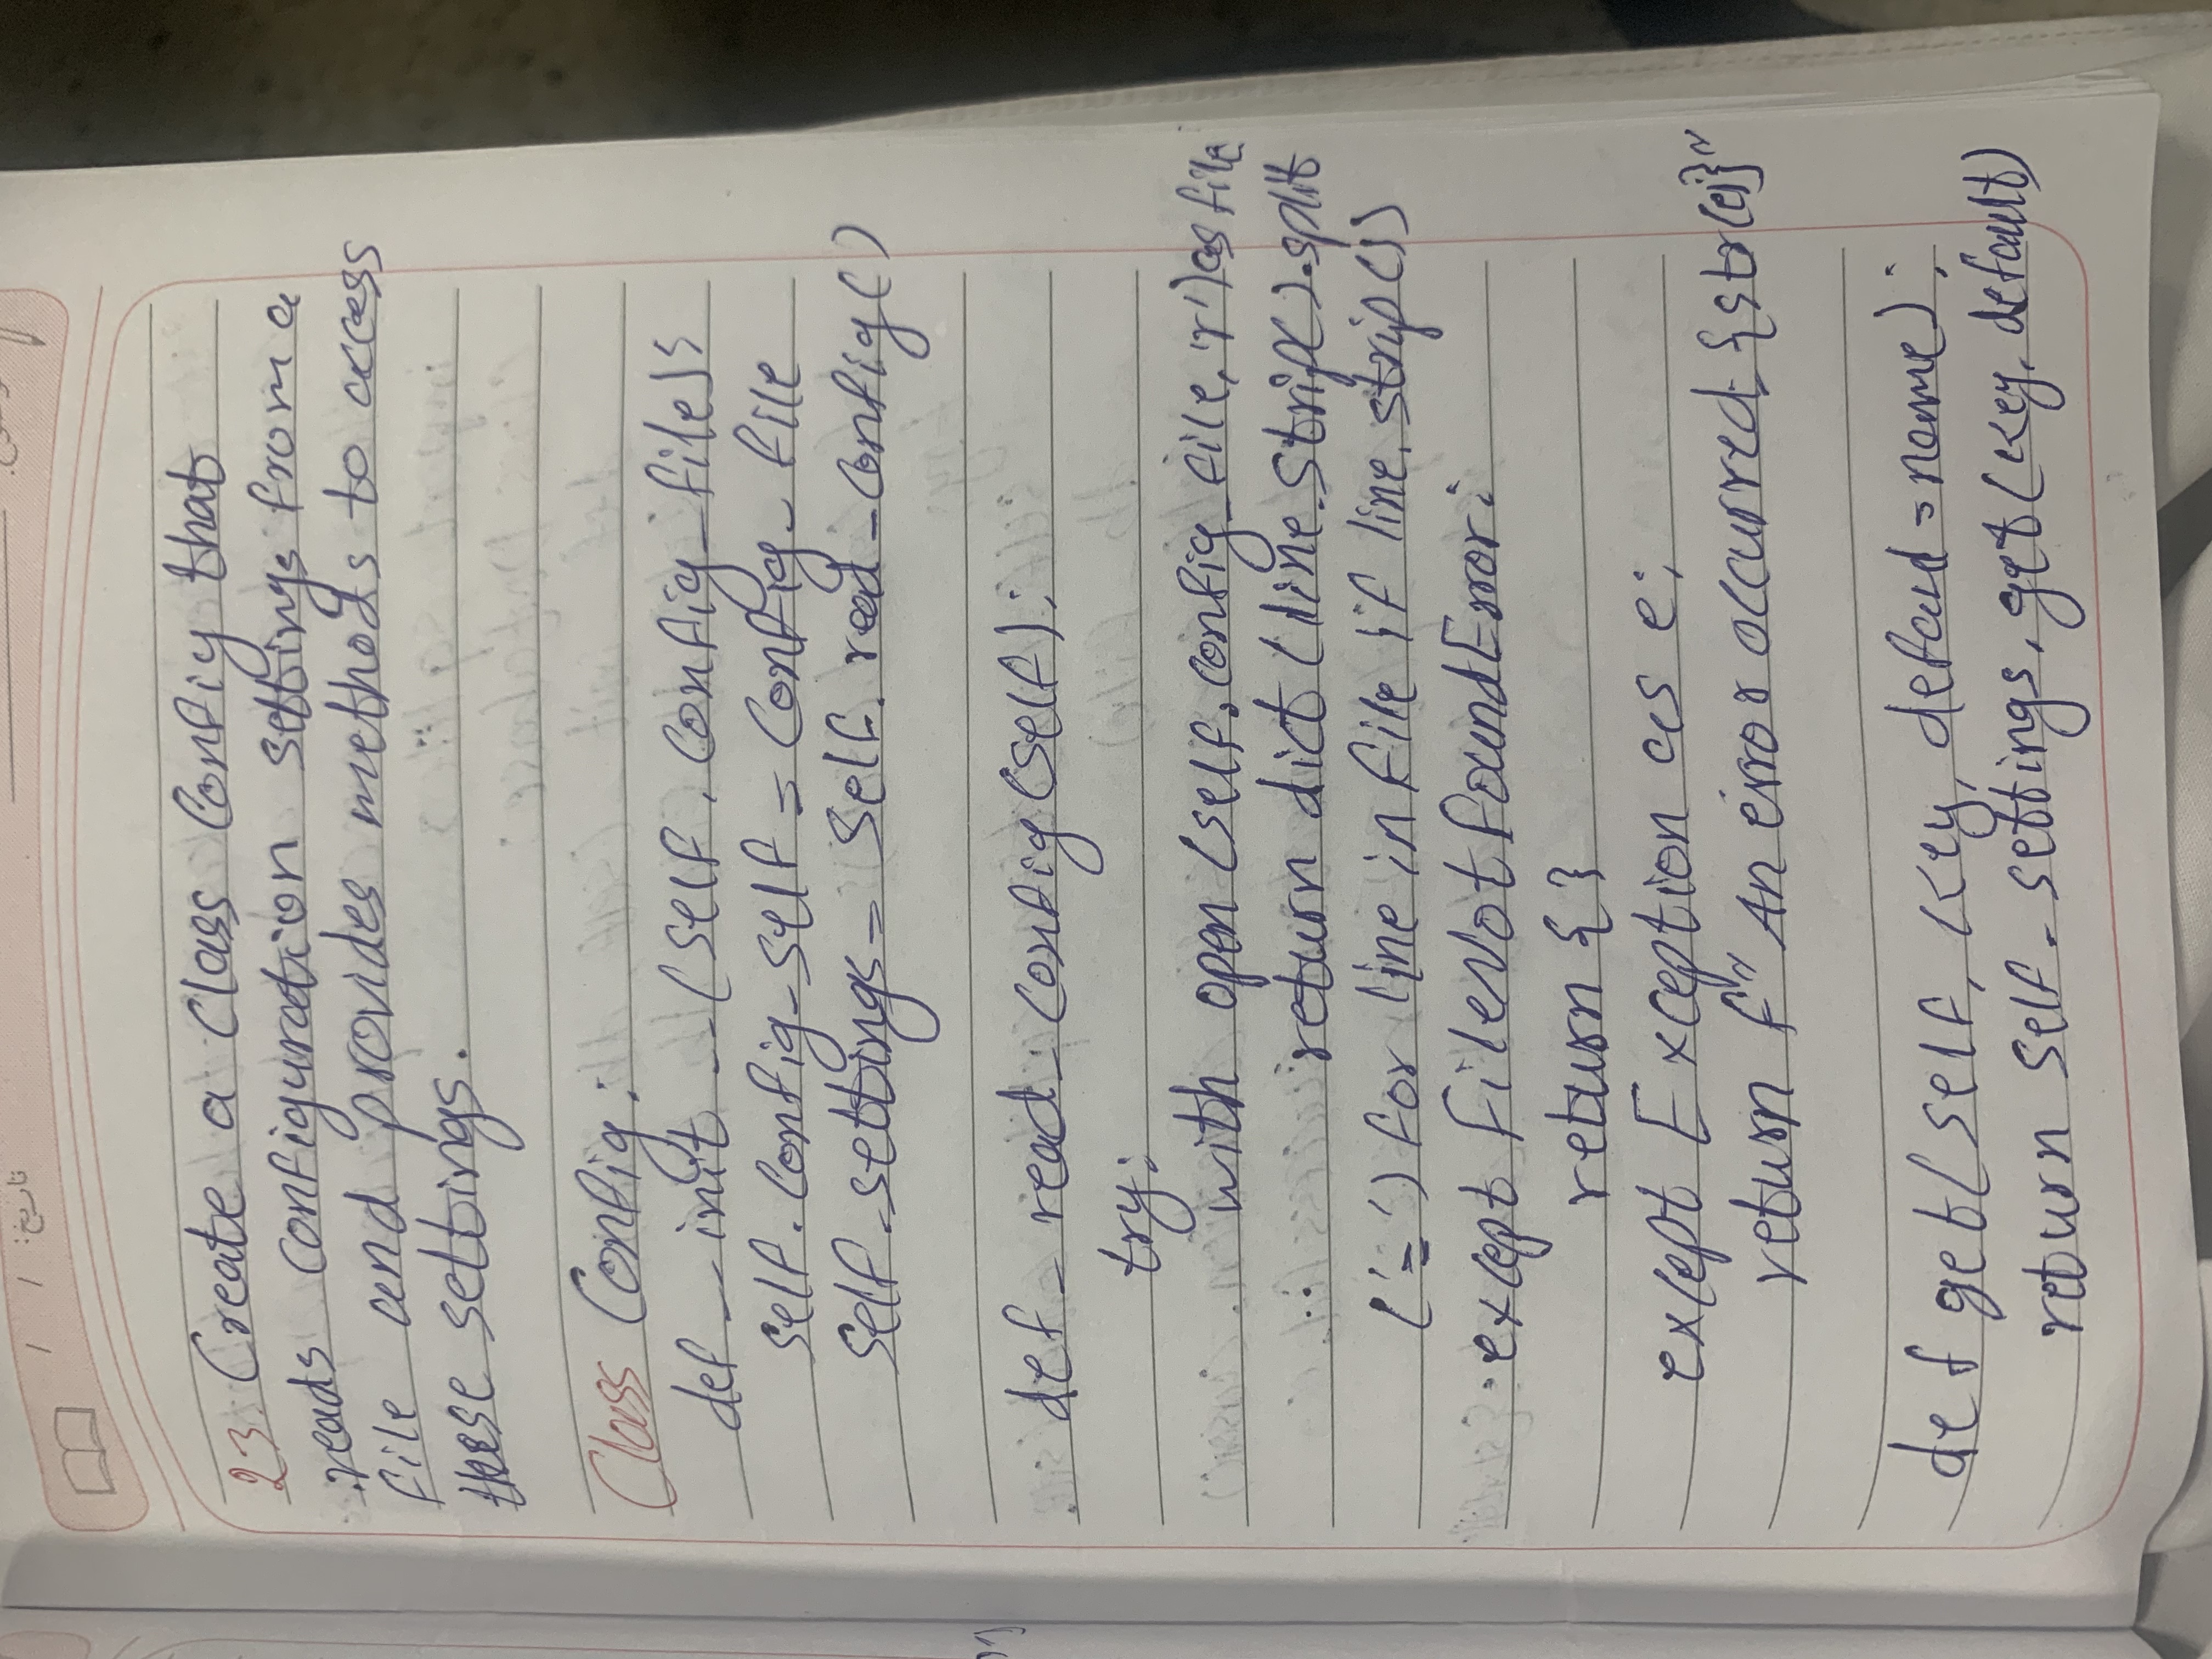 تاريخ: / /
23. Create a Class Config that
reads configuration settings from a
file and provides methods to access
these settings.
Class Config:
def _ init _ _ (self, config_file):
self.config_self = Config_ file
self.settings = self. read _ config()
def _ read _ config(self):
try:
with open (self.config_file, 'r') as file
return dict (line.strip().split
('=') for line in file if line.strip())
except FileNotFoundError:
return { }
except Exception as e:
return f" An error occurred: {str(e)}"
def get(self, key, defaud = nome):
return self. settings. get (key, default)